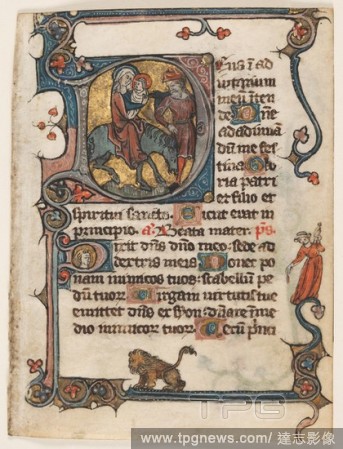 eus ĩ ad
iutorium
meũ ĩten
de ne
ad adiuuã
dũ me fes
tina lo
ria patri
et filio et
spiritui sancto. icut erat in
principio. a. Beata mater. ps.
ixit dñs dño meo: sede ad
dextris meis. onec po
nam inimicos tuos: scabellum pe
dũ tuor. irgam uirtutis tue
emittet dñs ex syon: dñare ĩ me
dio inimicor tuor. ecũ prĩci
TPG
www.tpgnews.com / 達志影像